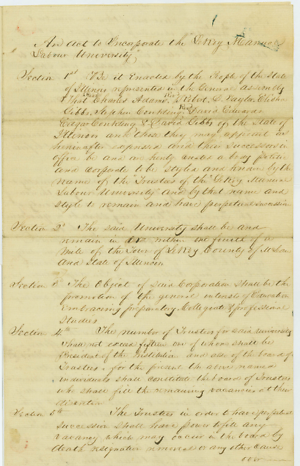 An Act to Incorporate the Perry Manual
Labour University
Section 1st Be it Enacted by the People of the State
of Illinois represented in the General Assembly
That Charles Adams,
of the State of
Illinois and that they may appoint as
hereinafter and their Successors in
office be and are hereby created a body politic
and corporate to be styled and known by the
name of the Trustees of the Perry Manual
Labour University and by that name and
style to remain and have perpetual succession
Section 2d The said University shall be and
remain in or within one fourth of a
mile of the Town of Perry County of
and State of Illinois
Section 3d The Object of said Corporation shall be the
promotion of the general interests of Education
Embracing preparatory, Collegiate & professional
Studies
Section 4th The number of Trustees for said University
Shall not exceed fifteen one of whom shall be
President of the Institution and one of the board of
Trustees, for the present the above named
individuals shall constitute the board of Trustees
who shall fill the remaining vacancies at their
discretion
Section 5th The Trustees in order to have perpetual
succession shall have power to fill any
vacancy which may occur in the board by
death resignation removal or any other cause